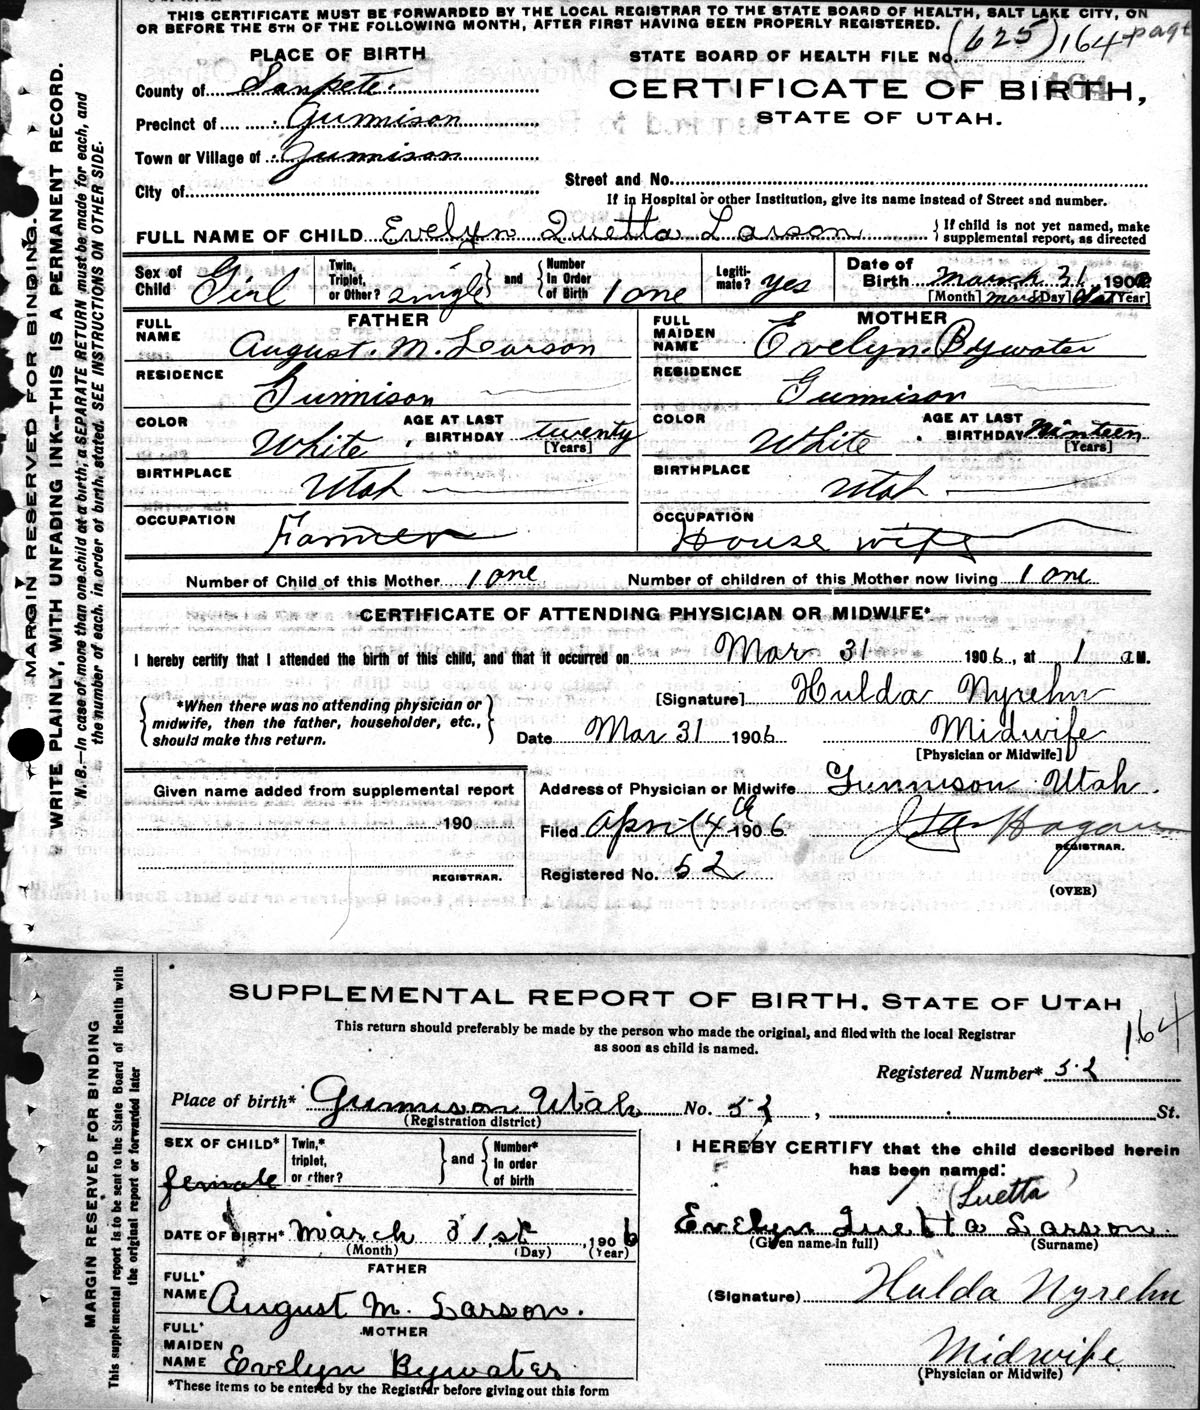 THIS CERTIFICATE MUST BE FORWARDED BY THE LOCAL REGISTRAR TO THE STATE BOARD OF HEALTH, SALT LAKE CITY, ON
OR BEFORE THE 5TH OF THE FOLLOWING MONTH, AFTER FIRST HAVING BEEN PROPERLY REGISTERED.
PLACE OF BIRTH
STATE BOARD OF HEALTH FILE No. (625) 164 page
County of Sanpete.
CERTIFICATE OF BIRTH,
STATE OF UTAH.
Precinct of Gunnison
Town or Village of Gunnison
City of
Street and No.
If in Hospital or other Institution, give its name instead of Street and number.
FULL NAME OF CHILD Evelyn Luetta Larson { If child is not yet named, make
supplemental report, as directed
Sex of Child Girl Twin, Triplet, or Other? single } and { Number in Order of Birth 1 one Legitimate? yes Date of Birth March 31 190
[Month] [Day] [Year]
FATHER MOTHER
FULL NAME August. M. Larson FULL MAIDEN NAME Evelyn. Bywater
RESIDENCE Gunnison RESIDENCE Gunnison
COLOR White AGE AT LAST BIRTHDAY twenty [Years] COLOR White AGE AT LAST BIRTHDAY Ninteen [Years]
BIRTHPLACE Utah BIRTHPLACE Utah
OCCUPATION Farmer OCCUPATION House wife
Number of Child of this Mother 1 one Number of children of this Mother now living 1 one
CERTIFICATE OF ATTENDING PHYSICIAN OR MIDWIFE*
I hereby certify that I attended the birth of this child, and that it occurred on Mar 31 1906, at 1 a M.
[Signature] Hulda Nyrehn
{ *When there was no attending physician or
midwife, then the father, householder, etc.,
should make this return. }
Date Mar 31 1906 Midwife
[Physician or Midwife]
Given name added from supplemental report
190
REGISTRAR.
Address of Physician or Midwife Gunnison Utah.
Filed April 4th 1906 Hagan
REGISTRAR.
Registered No. 52
(OVER)
MARGIN RESERVED FOR BINDING.
WRITE PLAINLY, WITH UNFADING INK—THIS IS A PERMANENT RECORD.
N. B.—In case of more than one child at a birth, a SEPARATE RETURN must be made for each, and
the number of each, in order of birth, stated. SEE INSTRUCTIONS ON OTHER SIDE.
SUPPLEMENTAL REPORT OF BIRTH, STATE OF UTAH
This return should preferably be made by the person who made the original, and filed with the local Registrar
as soon as child is named.
164
Registered Number* 52
Place of birth* Gunnison Utah No. 52, St.
(Registration district)
SEX OF CHILD* female Twin,* triplet, or other? } and { Number* in order of birth
I HEREBY CERTIFY that the child described herein
has been named:
(Luetta)
DATE OF BIRTH* March 31st, 1906
(Month) (Day) (Year)
Evelyn Luetta Larson.
(Given name in full) (Surname)
FATHER
FULL* NAME August M. Larson.
(Signature) Hulda Nyrehn
MOTHER
FULL* MAIDEN NAME Evelyn Bywater
Midwife
(Physician or Midwife)
*These items to be entered by the Registrar before giving out this form
MARGIN RESERVED FOR BINDING
This supplemental report is to be sent to the State Board of Health with
the original report or forwarded later